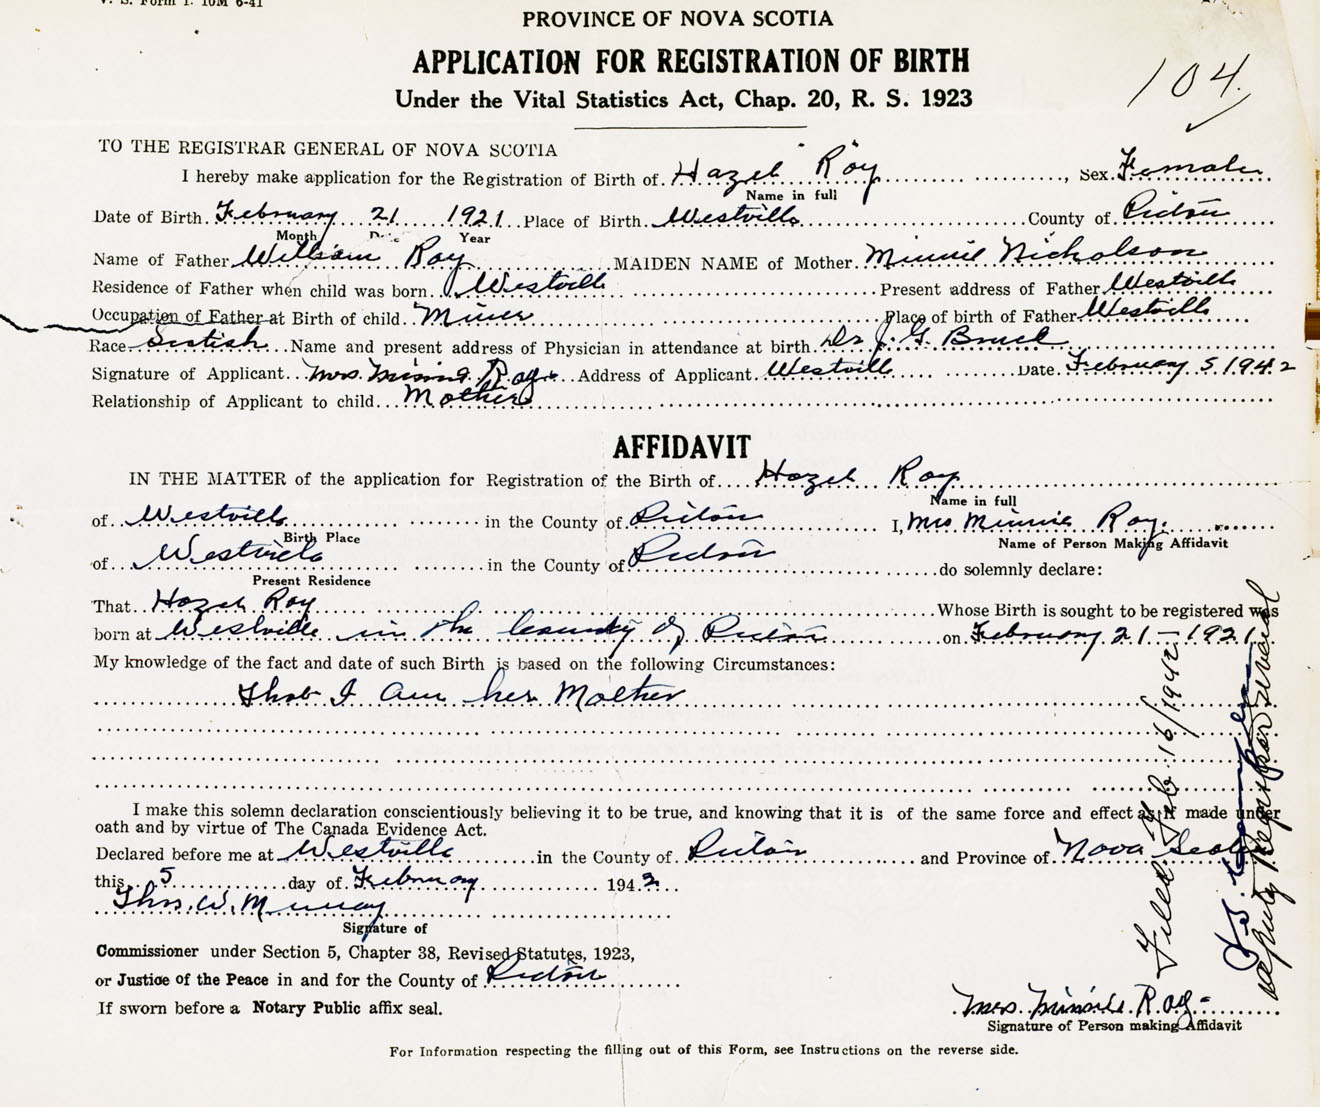 V. S. Form 1. 10M 6-41
PROVINCE OF NOVA SCOTIA
APPLICATION FOR REGISTRATION OF BIRTH
Under the Vital Statistics Act, Chap. 20, R. S. 1923
104
TO THE REGISTRAR GENERAL OF NOVA SCOTIA
I hereby make application for the Registration of Birth of Hazel Roy, Sex Female
Name in full
Date of Birth February 21 1921 Place of Birth Westville County of Pictou
Month Date Year
Name of Father William Roy MAIDEN NAME of Mother Minnie Nicholson
Residence of Father when child was born Westville Present address of Father Westville
Occupation of Father at Birth of child Miner Place of birth of Father Westville
Race Scotish Name and present address of Physician in attendance at birth Dr J. G.
Signature of Applicant Mrs. Minnie Roy Address of Applicant Westville Date February 5 1942
Relationship of Applicant to child Mother
AFFIDAVIT
IN THE MATTER of the application for Registration of the Birth of Hazel Roy
Name in full
of Westville in the County of Pictou I, Mrs Minnie Roy.
Birth Place Name of Person Making Affidavit
of Westville in the County of Pictou do solemnly declare:
Present Residence
That Hazel Roy Whose Birth is sought to be registered was
born at Westville in the County of Pictou on February 21 - 1921
My knowledge of the fact and date of such Birth is based on the following Circumstances:
That I am her Mother
I make this solemn declaration conscientiously believing it to be true, and knowing that it is of the same force and effect as if made under
oath and by virtue of The Canada Evidence Act.
Declared before me at Westville in the County of Pictou and Province of Nova Scotia
this 5 day of February 1942
Thos. W. Murray
Signature of
Commissioner under Section 5, Chapter 38, Revised Statutes, 1923,
or Justice of the Peace in and for the County of Pictou
If sworn before a Notary Public affix seal.
Mrs. Minnie Roy
Signature of Person making Affidavit
For Information respecting the filling out of this Form, see Instructions on the reverse side.
Filed Feb. 16/1942
Deputy Registrar General